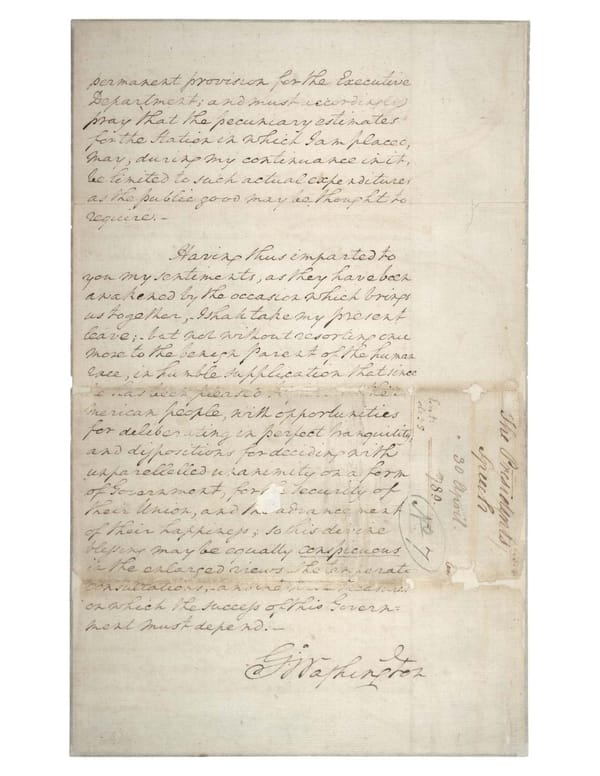 permanent provision for the Executive
Department; and must accordingly
pray that the pecuniary estimates
for the Station in which I am placed,
may, during my continuance in it,
be limited to such actual expenditures
as the public good may be thought to
require.—
Having thus imparted to
you my sentiments, as they have been
awakened by the occasion which brings
us together,—I shall take my present
leave;—but not without resorting once
more to the benign Parent of the human
race, in humble supplication that since
he has been pleased
merican people, with opportunities
for deliberating in perfect tranquility,
and dispositions for deciding with
unparellelled unanimity on a form
of Government, for the security of
their Union, and the advancement
of their happiness; so this divine
blessing may be equally conspicuous
in the enlarged views—the temperate
consultations,—and the
on which the success of this Govern-
ment must depend.—
G:Washington
The President's
Speech
30 April.
789
No 7